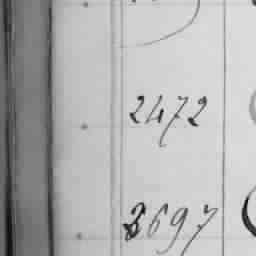 2472
3697